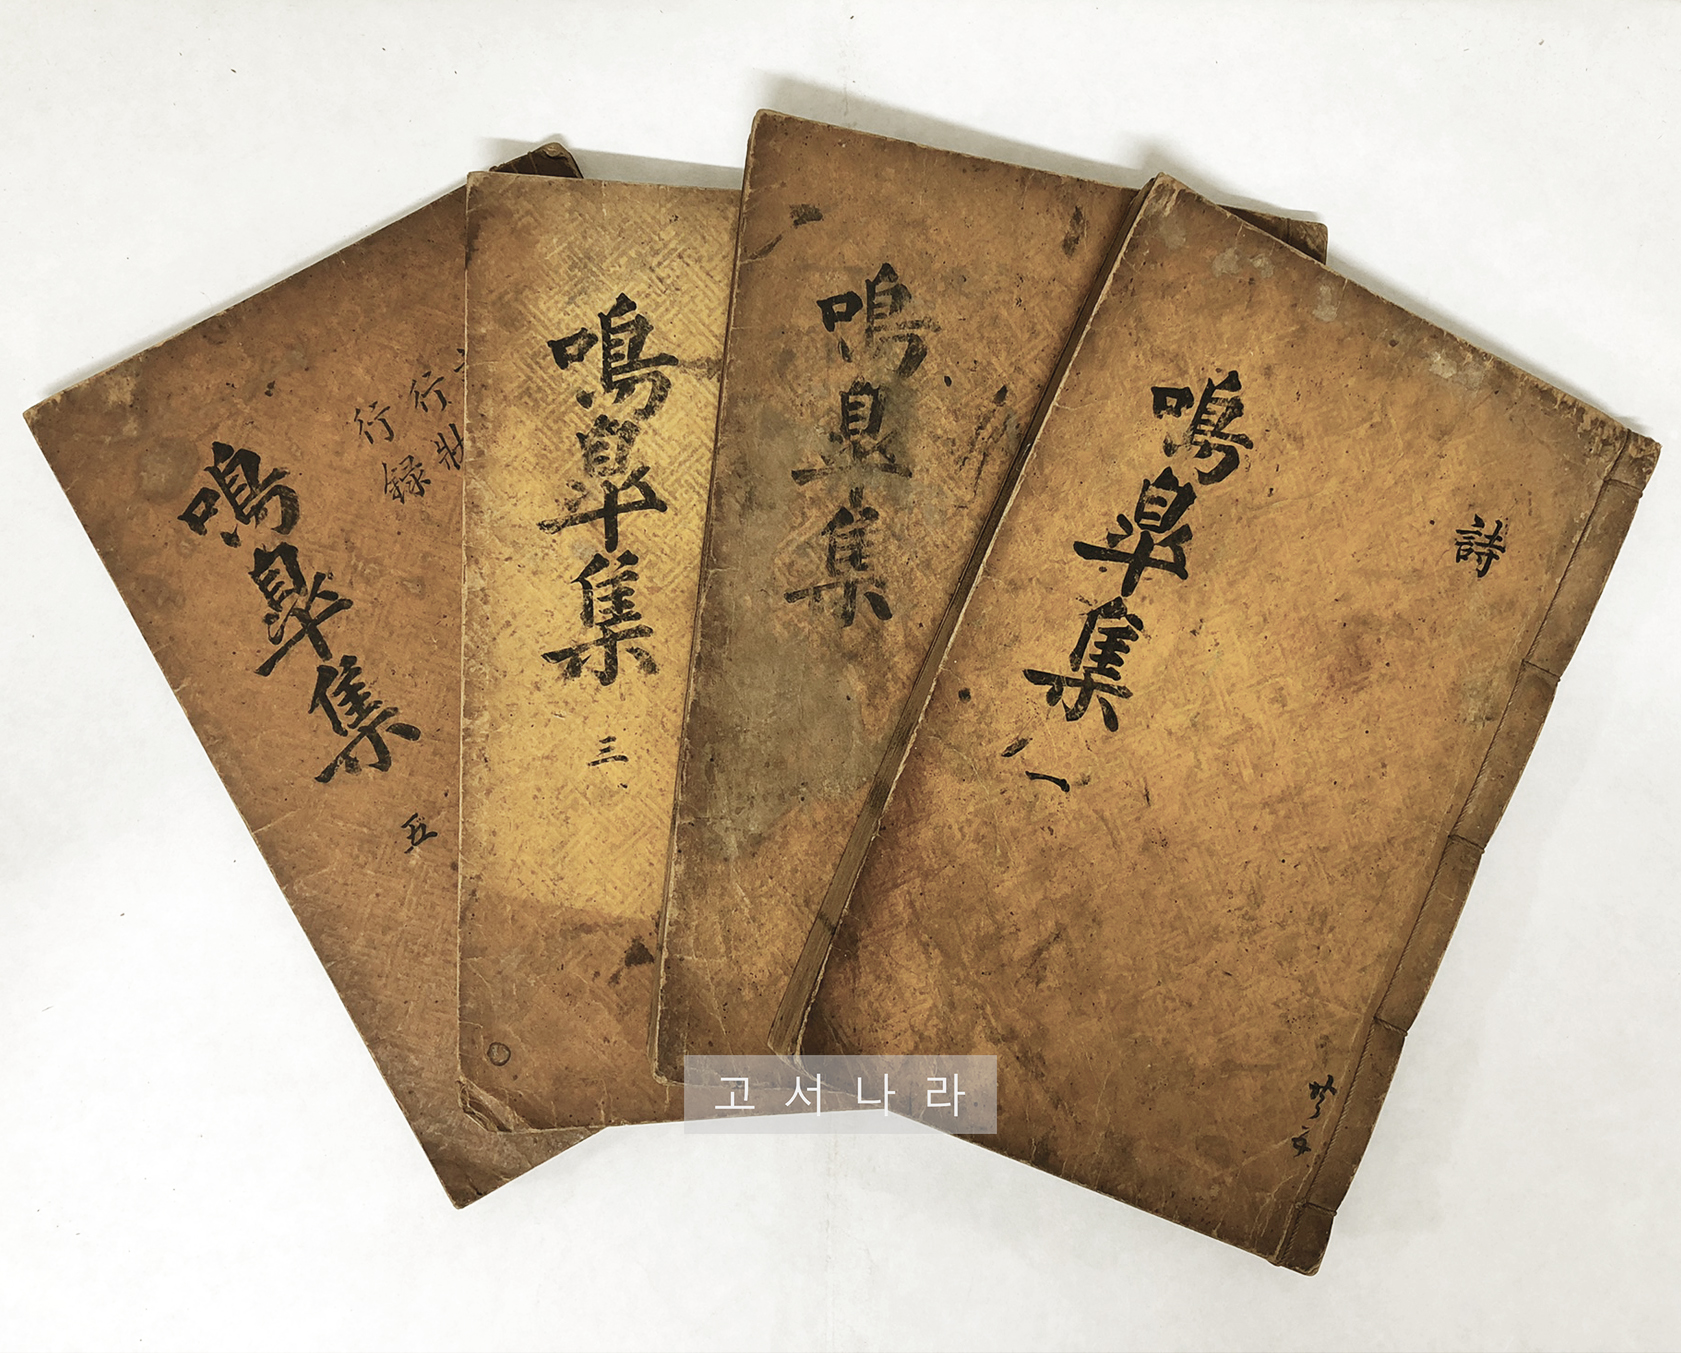 鳴皐集 一
詩
鳴皐集
鳴皐集
三
鳴皐集
五
行狀
行錄
고서나라